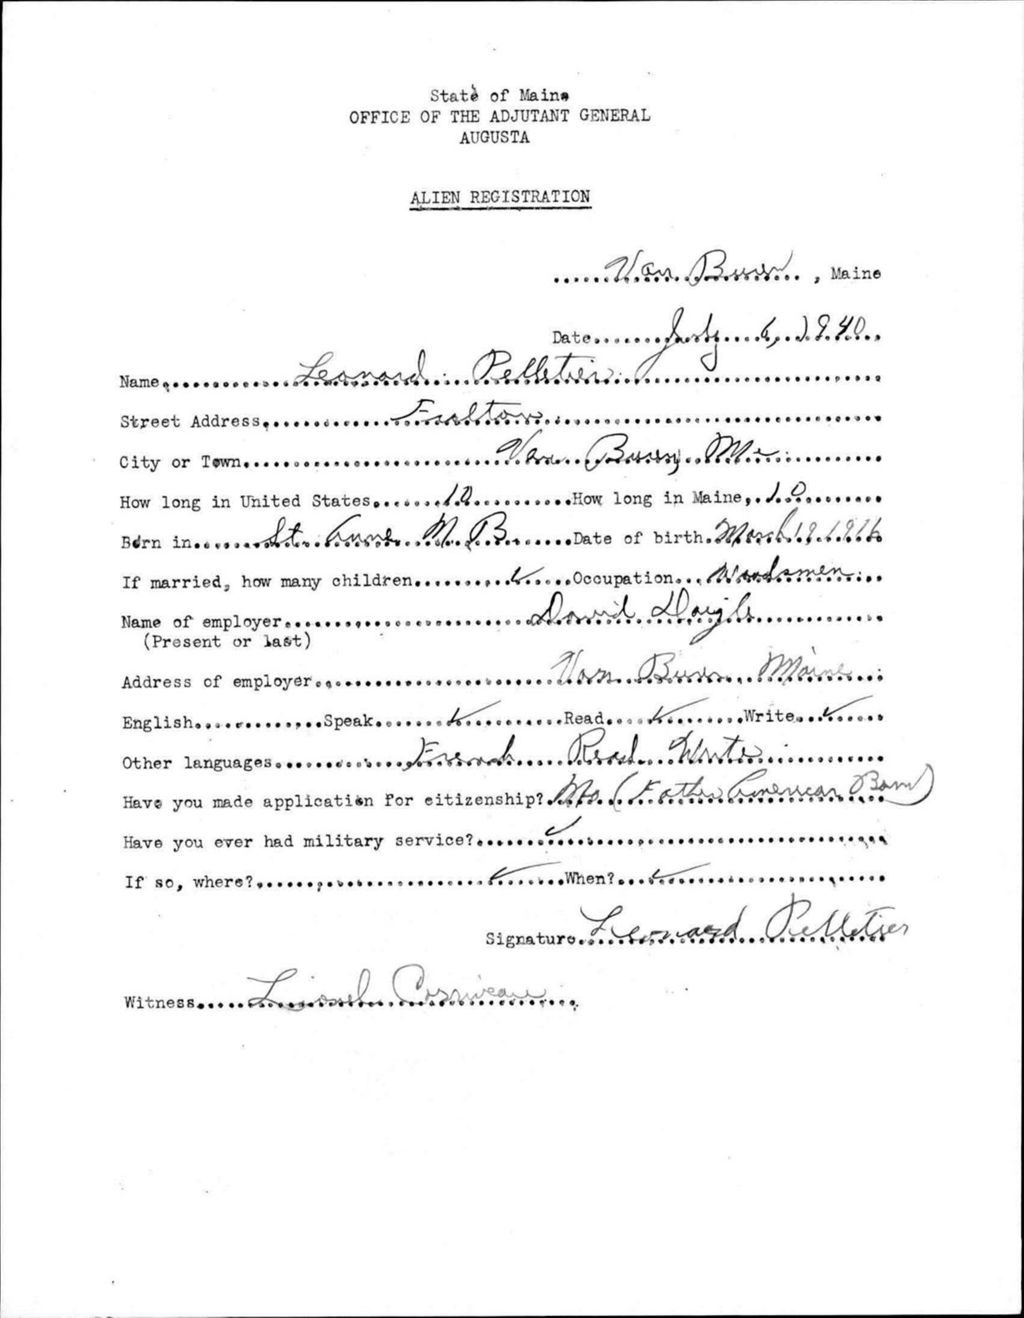 State of Maine
OFFICE OF THE ADJUTANT GENERAL
AUGUSTA
ALIEN REGISTRATION
Van Buren, Maine
Date July 6, 1940
Name Leonard Pelletier
Street Address
City or Town Van Buren, Me
How long in United States 10 How long in Maine, 10
Born in St. Anne N.B. Date of birth March 19, 1916
If married, how many children ✓ Occupation Woodsmen
Name of employer David Daigle
(Present or last)
Address of employer Van Buren, Maine
English Speak ✓ Read ✓ Write ✓
Other languages French Read Write
Have you made application for citizenship? No (Father American Born)
Have you ever had military service? ✓
If so, where? ✓ When? ✓
Signature Leonard Pelletier
Witness Lionel Corriveau